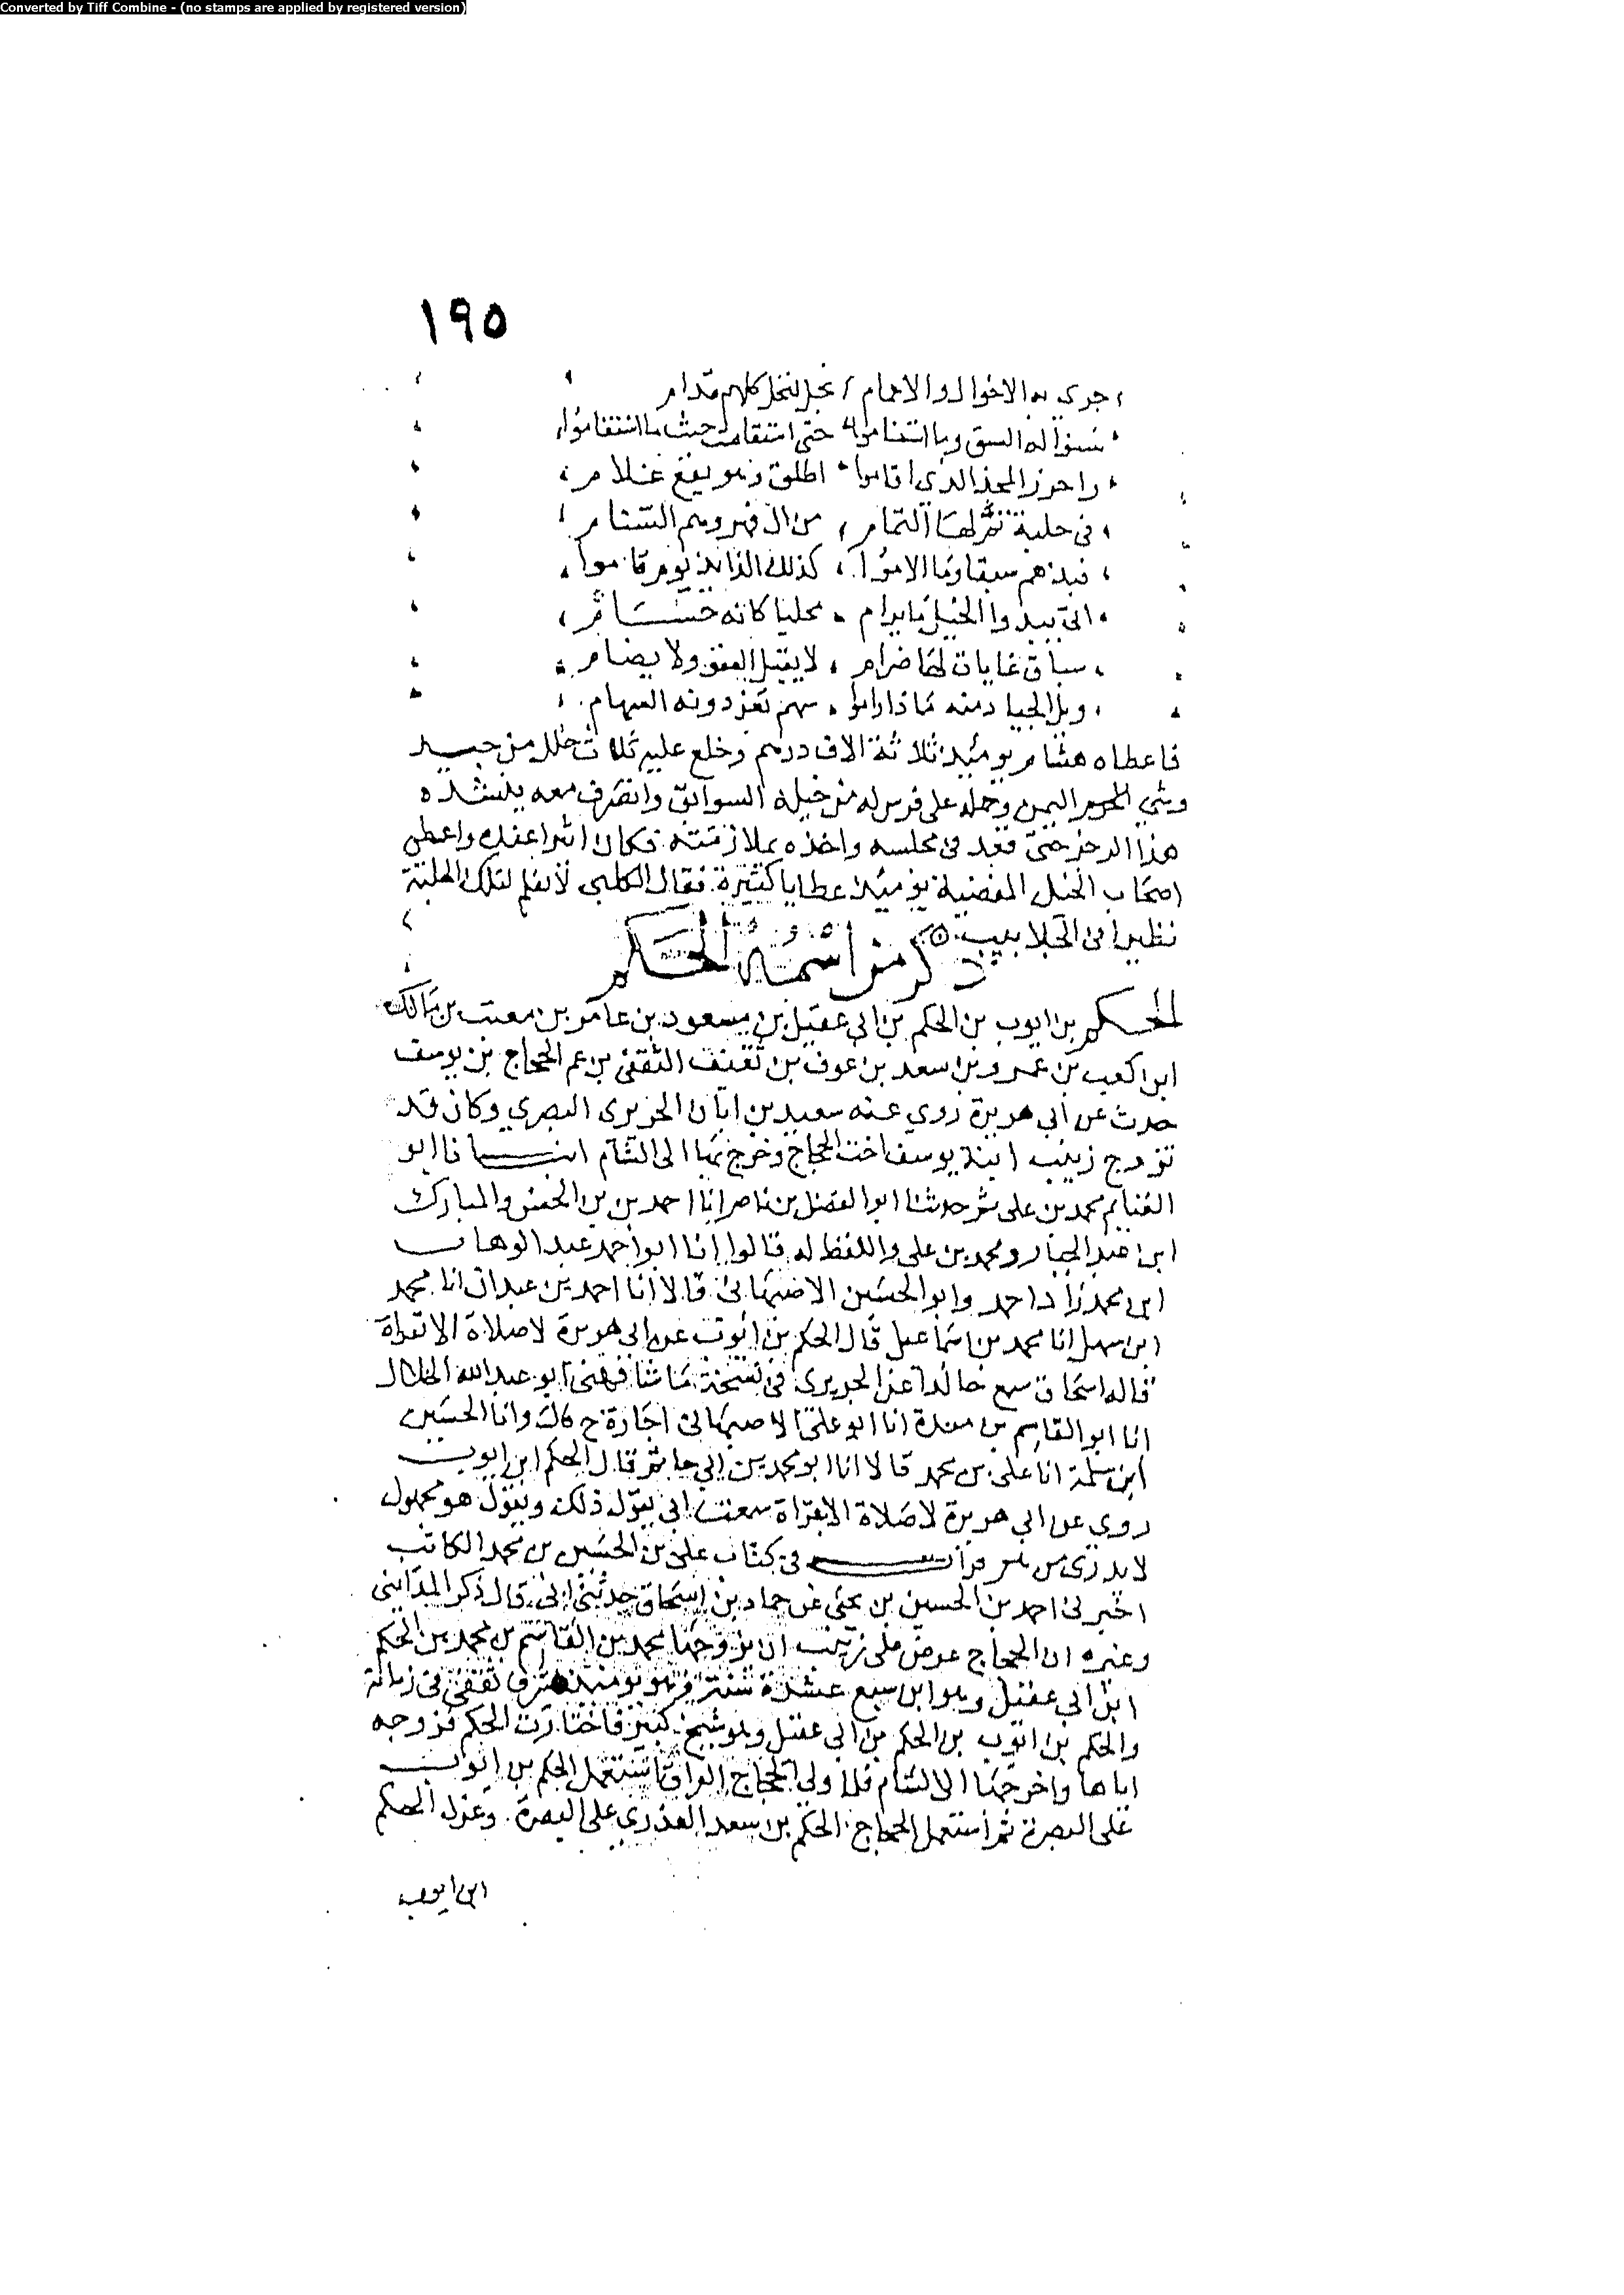 Converted by Tiff Combine - (no stamps are applied by registered version)
١٩٥
جرى به الاخوال والاعمام نجل لنجل كلهم قدام
سنوا له السبق وما استناموا حتى استقامت حيث ما استقاموا
واحرز المجد الذي اقاموا اطلق وهو يفع غلام
في حلبة تم لها التمام من ال فهر وهم السنام
فبذهم سبقا وما الاموا كذلك الذايد يوم قاموا
اتى ببدو الخيل ما يرام مجليا كانه حسام
سباق غايات لها ضرام لا يقبل العفو ولا يضام
ويل الجياد منه ماذا راموا سهم تعز دونه السهام
فاعطاه هشام يوميذ ثلاثة الاف درهم وخلع عليه ثلاث حلل من جيد
وشي اليمن وحمله على فرس له من خيله السوابق وانصرف معه ينشده
هذا الرجز حتى قعد في مجلسه واخذه بملازمته فكان اثيرا عنده واعطى
اصحاب الخيل المقصبة يوميذ عطايا كثيرة فقال الكلبي لا نعلم لتلك الحلبة
نظيرا في الحلايب
ذكر من اسمه الحكم
الحكم بن ايوب بن الحكم بن ابي عقيل بن مسعود بن عامر بن معتب بن مالك
ابن كعب بن عمرو بن سعد بن عوف بن ثقيف الثقفي بن عم الحجاج بن يوسف
حدث عن ابي هريرة روى عنه سعيد بن اياس الجريري البصري وكان قد
تزوج زينب ابنة يوسف اخت الحجاج وخرج بها الى الشام انبانا ابو
الغنايم محمد بن علي ثم حدثنا ابو الفضل بن ناصر انا احمد بن الحسن والمبارك
ابن عبد الجبار ومحمد بن علي واللفظ له قالوا انا ابو احمد عبد الوهاب
ابن محمد زاد احمد وابو الحسين الاصبهاني قالا انا احمد بن عبدان انا محمد
ابن سهل انا محمد بن اسماعيل قال الحكم بن ايوب عن ابي هريرة لا صلاة الا بقراة
قاله اسحاق سمع خالدا عن الجريري في نسخة ما شافهني ابو عبد الله الخلال
انا ابو القاسم بن مندة انا ابو علي الاصبهاني اجازة ح قال وانا الحسين
ابن سلمة انا علي بن محمد قالا انا ابو محمد بن ابي حاتم قال الحكم ابن ايوب
روى عن ابي هريرة لا صلاة الا بقراة سمعت ابي يقول ذلك ويقول هو مجهول
لا يدرى من هو قرات في كتاب علي بن الحسين بن محمد الكاتب
اخبرني احمد بن الحسين بن يحيى عن حماد بن اسحاق حدثني ابي قال ذكر المدايني
وغيره ان الحجاج عرض على زينب ان يزوجها محمد بن القاسم بن محمد بن الحكم
ابن ابي عقيل وهو ابن سبع عشرة سنة وهو يوميذ اشرف ثقفي في زمانه
والحكم بن ايوب بن الحكم بن ابي عقيل وهو شيخ كبير فاختارت الحكم فزوجه
اياها واخرجها الى الشام فلما ولي الحجاج العراق استعمل الحكم بن ايوب
على البصرة ثم استعمل الحجاج الحكم بن سعد العذري على البصرة وعزل الحكم
ابن ايوب